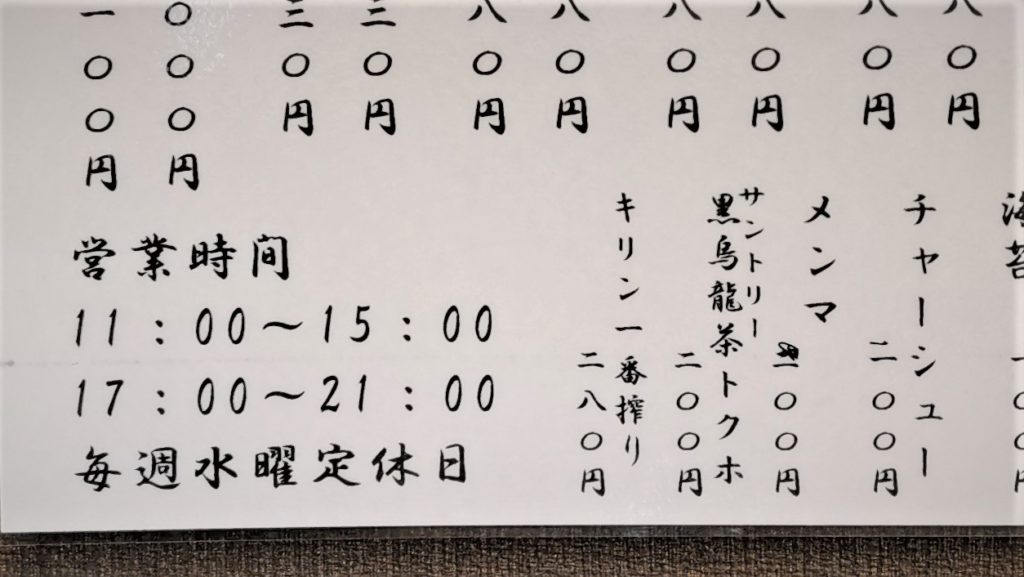 八〇円
八〇円
八〇円
八〇円
八〇円
八〇円
三〇円
三〇円
〇〇〇円
一〇〇円
海苔
チャーシュー
二〇〇円
メンマ
〇〇円
サントリー
黒烏龍茶トクホ
二〇〇円
キリン一番搾り
二八〇円
営業時間
11:00～15:00
17:00～21:00
毎週水曜定休日